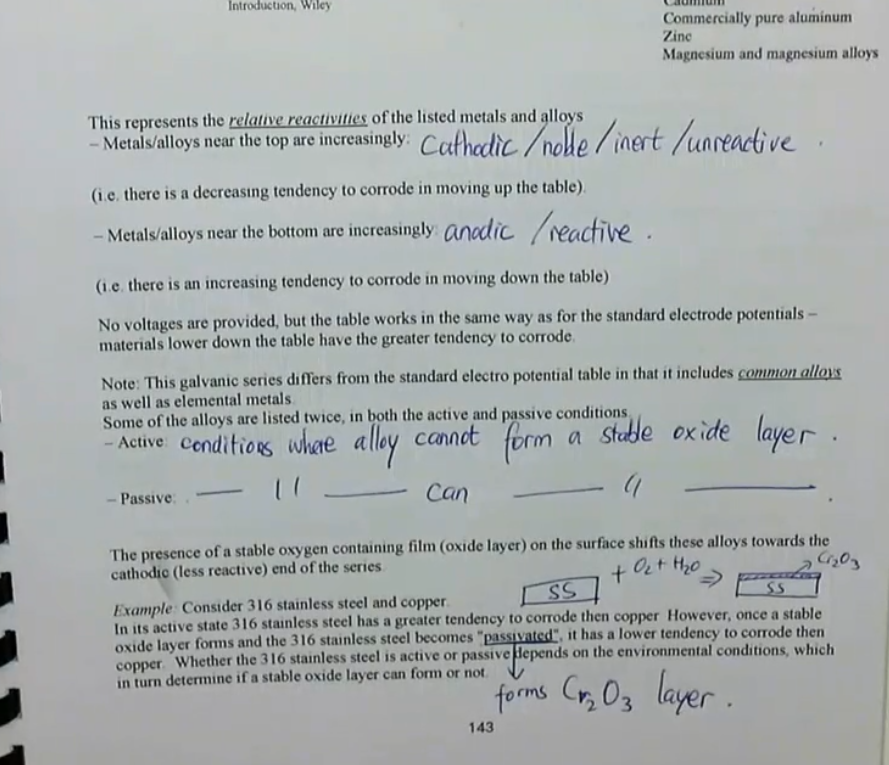 Introduction, Wiley
Cadmium
Commercially pure aluminum
Zinc
Magnesium and magnesium alloys
This represents the relative reactivities of the listed metals and alloys
– Metals/alloys near the top are increasingly: Cathodic / noble / inert / unreactive .
(i.e. there is a decreasing tendency to corrode in moving up the table).
– Metals/alloys near the bottom are increasingly: anodic / reactive .
(i.e. there is an increasing tendency to corrode in moving down the table)
No voltages are provided, but the table works in the same way as for the standard electrode potentials –
materials lower down the table have the greater tendency to corrode.
Note: This galvanic series differs from the standard electro potential table in that it includes common alloys
as well as elemental metals.
Some of the alloys are listed twice, in both the active and passive conditions.
– Active: conditions where alloy cannot form a stable oxide layer .
– Passive: — 11 — can — 11 — .
The presence of a stable oxygen containing film (oxide layer) on the surface shifts these alloys towards the
cathodic (less reactive) end of the series.
SS + O₂ + H₂O ⇒ SS Cr₂O₃
Example: Consider 316 stainless steel and copper.
In its active state 316 stainless steel has a greater tendency to corrode then copper. However, once a stable
oxide layer forms and the 316 stainless steel becomes "passivated", it has a lower tendency to corrode then
copper. Whether the 316 stainless steel is active or passive depends on the environmental conditions, which
in turn determine if a stable oxide layer can form or not.
forms Cr₂O₃ layer .
143